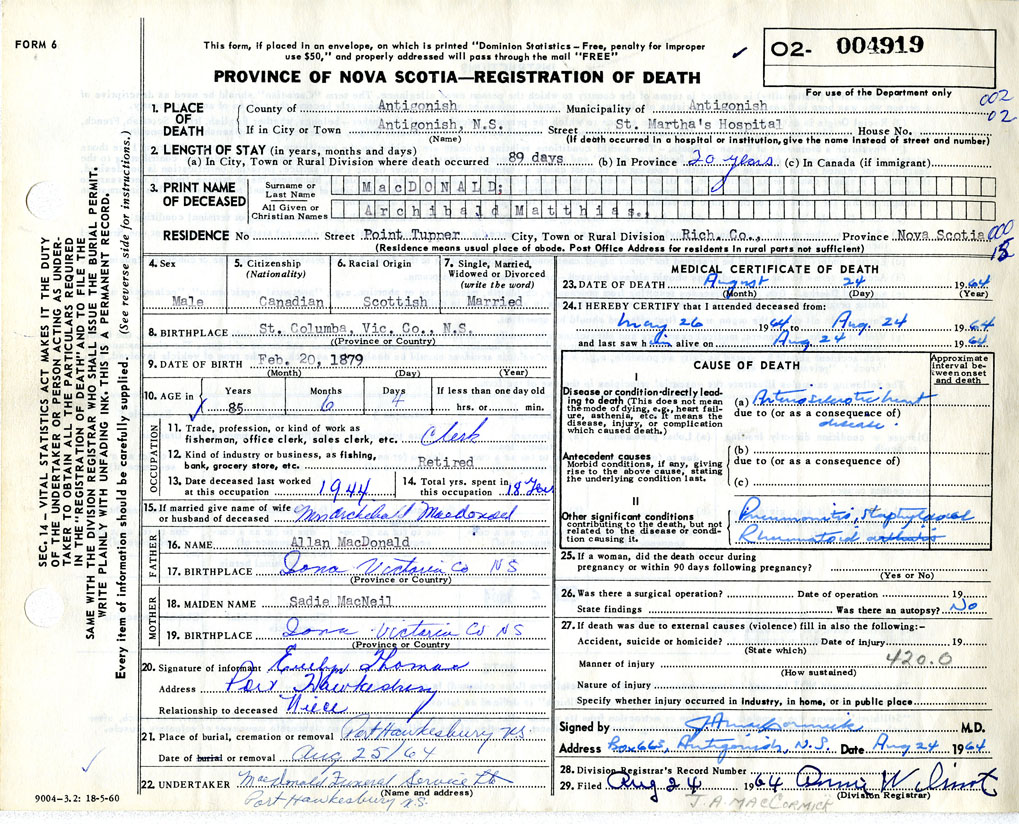 FORM 6
This form, if placed in an envelope, on which is printed "Dominion Statistics – Free, penalty for improper
use $50," and properly addressed will pass through the mail "FREE"
✓
O2- 004919
For use of the Department only
PROVINCE OF NOVA SCOTIA—REGISTRATION OF DEATH
002
02
1. PLACE OF DEATH
County of Antigonish Municipality of Antigonish
If in City or Town Antigonish, N.S. Street St. Martha's Hospital House No.
(Name) (If death occurred in a hospital or institution, give the name instead of street and number)
2. LENGTH OF STAY (in years, months and days)
(a) In City, Town or Rural Division where death occurred 89 days (b) In Province 20 years (c) In Canada (if immigrant)
3. PRINT NAME OF DECEASED
Surname or Last Name MacDONALD;
All Given or Christian Names Archibald Matthias.,
RESIDENCE No Street Point Tupper City, Town or Rural Division Rich. Co., Province Nova Scotia
000
15
(Residence means usual place of abode. Post Office Address for residents in rural parts not sufficient)
4. Sex Male
5. Citizenship (Nationality) Canadian
6. Racial Origin Scottish
7. Single, Married, Widowed or Divorced (write the word) Married
8. BIRTHPLACE St. Columba, Vic. Co., N.S.
((Province or Country)
9. DATE OF BIRTH Feb. 20, 1879
(Month) (Day) (Year)
10. AGE in Years 85 Months 6 Days 4 If less than one day old hrs. or min.
OCCUPATION
11. Trade, profession, or kind of work as fisherman, office clerk, sales clerk, etc. Clerk
12. Kind of industry or business, as fishing, bank, grocery store, etc. Retired
13. Date deceased last worked at this occupation 1944
14. Total yrs. spent in this occupation 18
15. If married give name of wife or husband of deceased Mrs Archibald Macdonald
FATHER
16. NAME Allan MacDonald
17. BIRTHPLACE Iona Victoria Co NS
(Province or Country)
MOTHER
18. MAIDEN NAME Sadie MacNeil
19. BIRTHPLACE Iona Victoria Co NS
(Province or Country)
20. Signature of informant Evelyn Thomas
Address Port Hawkesbury
Relationship to deceased Niece
21. Place of burial, cremation or removal Port Hawkesbury NS.
Date of burial or removal Aug 25/64
22. UNDERTAKER MacDonald Funeral Service
(Name and address)
Port Hawkesbury NS.
MEDICAL CERTIFICATE OF DEATH
23. DATE OF DEATH August 24 1964
(Month) (Day) (Year)
24. I HEREBY CERTIFY that I attended deceased from:
May 26 1964 to Aug. 24 1964
and last saw him alive on Aug 24 1964
CAUSE OF DEATH
Approximate interval between onset and death
I
Disease or condition directly leading to death (This does not mean the mode of dying, e.g., heart failure, asthenia, etc. It means the disease, injury, or complication which caused death.)
(a) Arteriosclerotic heart
due to (or as a consequence of)
disease.
Antecedent causes
Morbid conditions, if any, giving rise to the above cause, stating the underlying condition last.
(b)
due to (or as a consequence of)
(c)
II
Other significant conditions contributing to the death, but not related to the disease or condition causing it.
Pneumonitis, Staphylococcal
Rheumatoid arthritis
25. If a woman, did the death occur during pregnancy or within 90 days following pregnancy?
(Yes or No)
26. Was there a surgical operation? Date of operation 19
State findings Was there an autopsy? No
27. If death was due to external causes (violence) fill in also the following:–
Accident, suicide or homicide? Date of injury 19
(State which)
420.0
Manner of injury
(How sustained)
Nature of injury
Specify whether injury occurred in industry, in home, or in public place
Signed by J A MacCormick M.D.
Address Box 665, Antigonish, N.S. Date Aug 24 1964
28. Division Registrar's Record Number
29. Filed Aug 24 1964 Annie Wilmot
(Division Registrar)
J. A. MACCORMICK
SEC. 14 – VITAL STATISTICS ACT MAKES IT THE DUTY
OF THE UNDERTAKER OR PERSON ACTING AS UNDER-
TAKER TO OBTAIN ALL THE PARTICULARS REQUIRED
IN THE "REGISTRATION OF DEATH" AND TO FILE THE
SAME WITH THE DIVISION REGISTRAR WHO SHALL ISSUE THE BURIAL PERMIT.
WRITE PLAINLY WITH UNFADING INK. THIS IS A PERMANENT RECORD.
Every item of information should be carefully supplied. (See reverse side for instructions.)
9004-3.2: 18-5-60